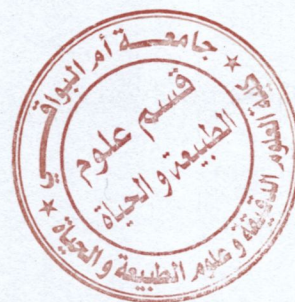 جامعة أم البواقي
كلية العلوم الدقيقة و علوم الطبيعة و الحياة
قسم علوم
الطبيعة و الحياة